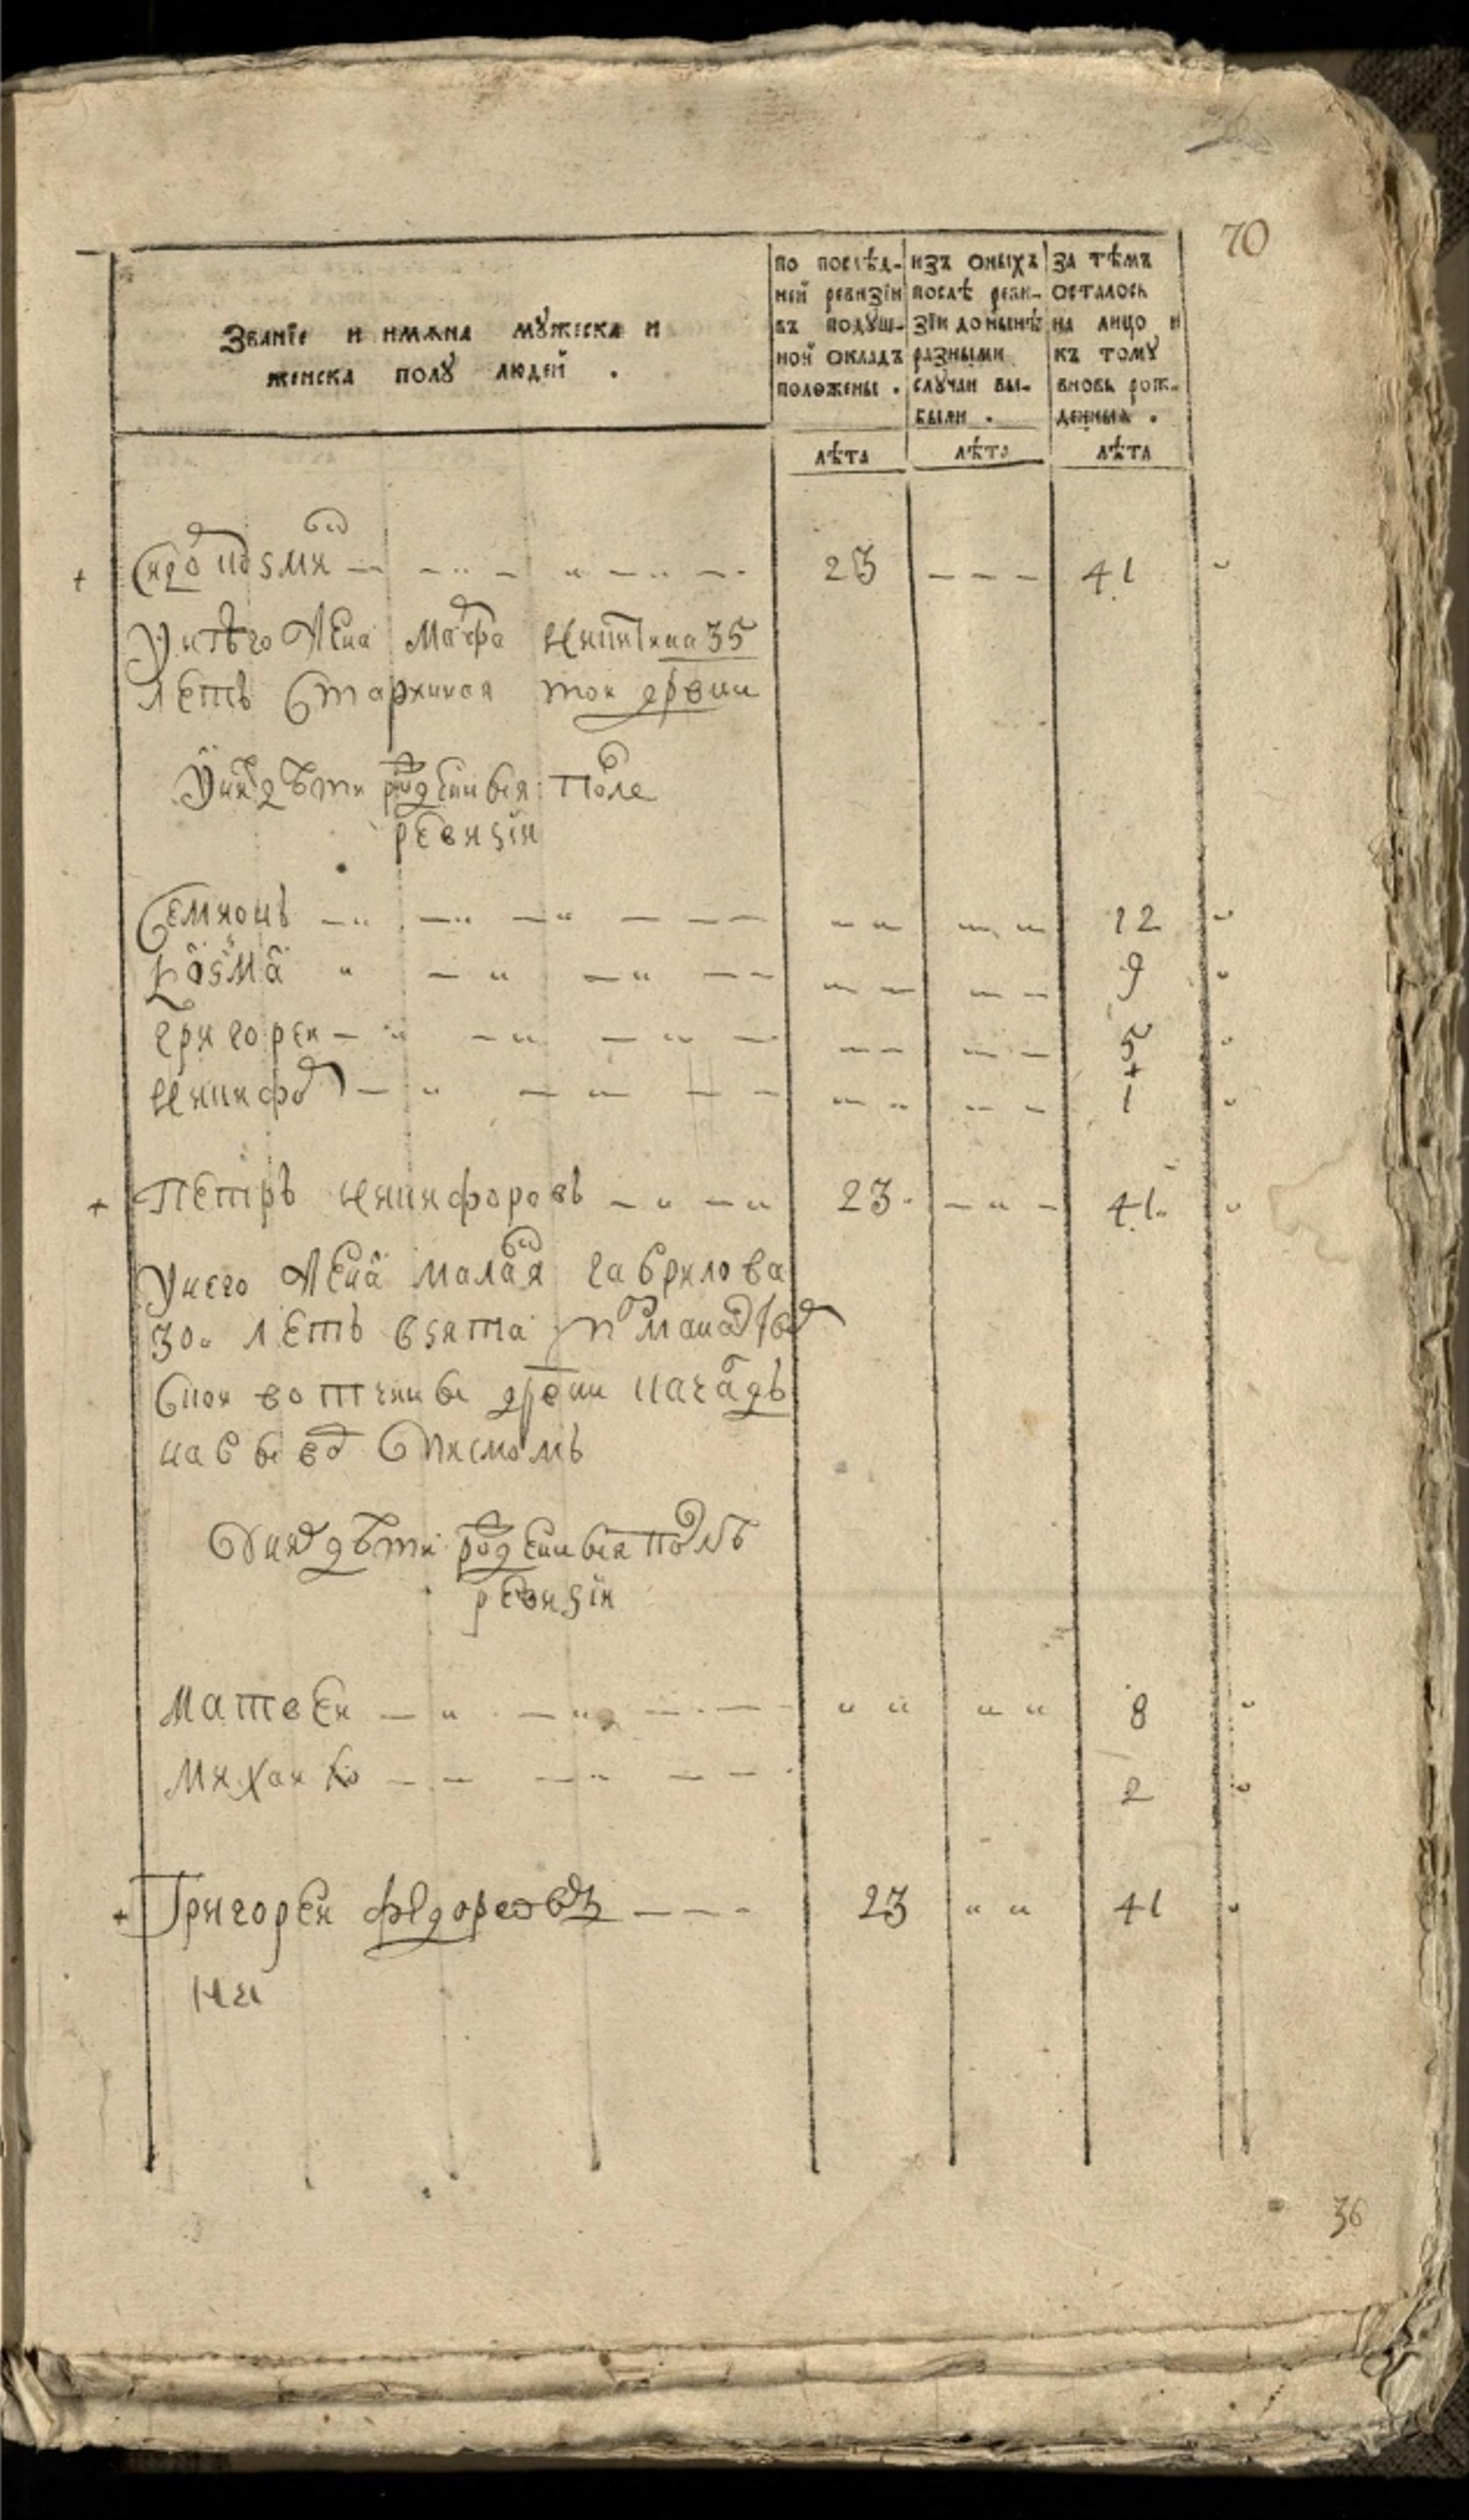 70
Званїе и имѧна мꙋжеска и
женска полꙋ людей .
по послѣд-
ней ревизїи
въ подꙋш-
ной окладъ
положены .
изъ оныхъ
послѣ реви-
зїи донынѣ
разными
слꙋчаи вы-
были .
за тѣмъ
осталось
на лицо и
къ томꙋ
вновь рож-
денныя .
лѣта лѣта лѣта
23 41
У нѣго жена Марфа 35
летъ Старинная тои дрвни
У них дѣти рожденныя после
ревизїи
Семионъ 12
Козма 9
Григореи 5
Никифор 1
Петръ Никифоровъ 23 41
У него жена малая гаврилова
30 летъ взята
вотчины дрвни
на вывод Списмомъ
У них дѣти рожденныя послѣ
ревизїи
Матвеи 8
Михаило 2
Григореи федоров 23 41
36